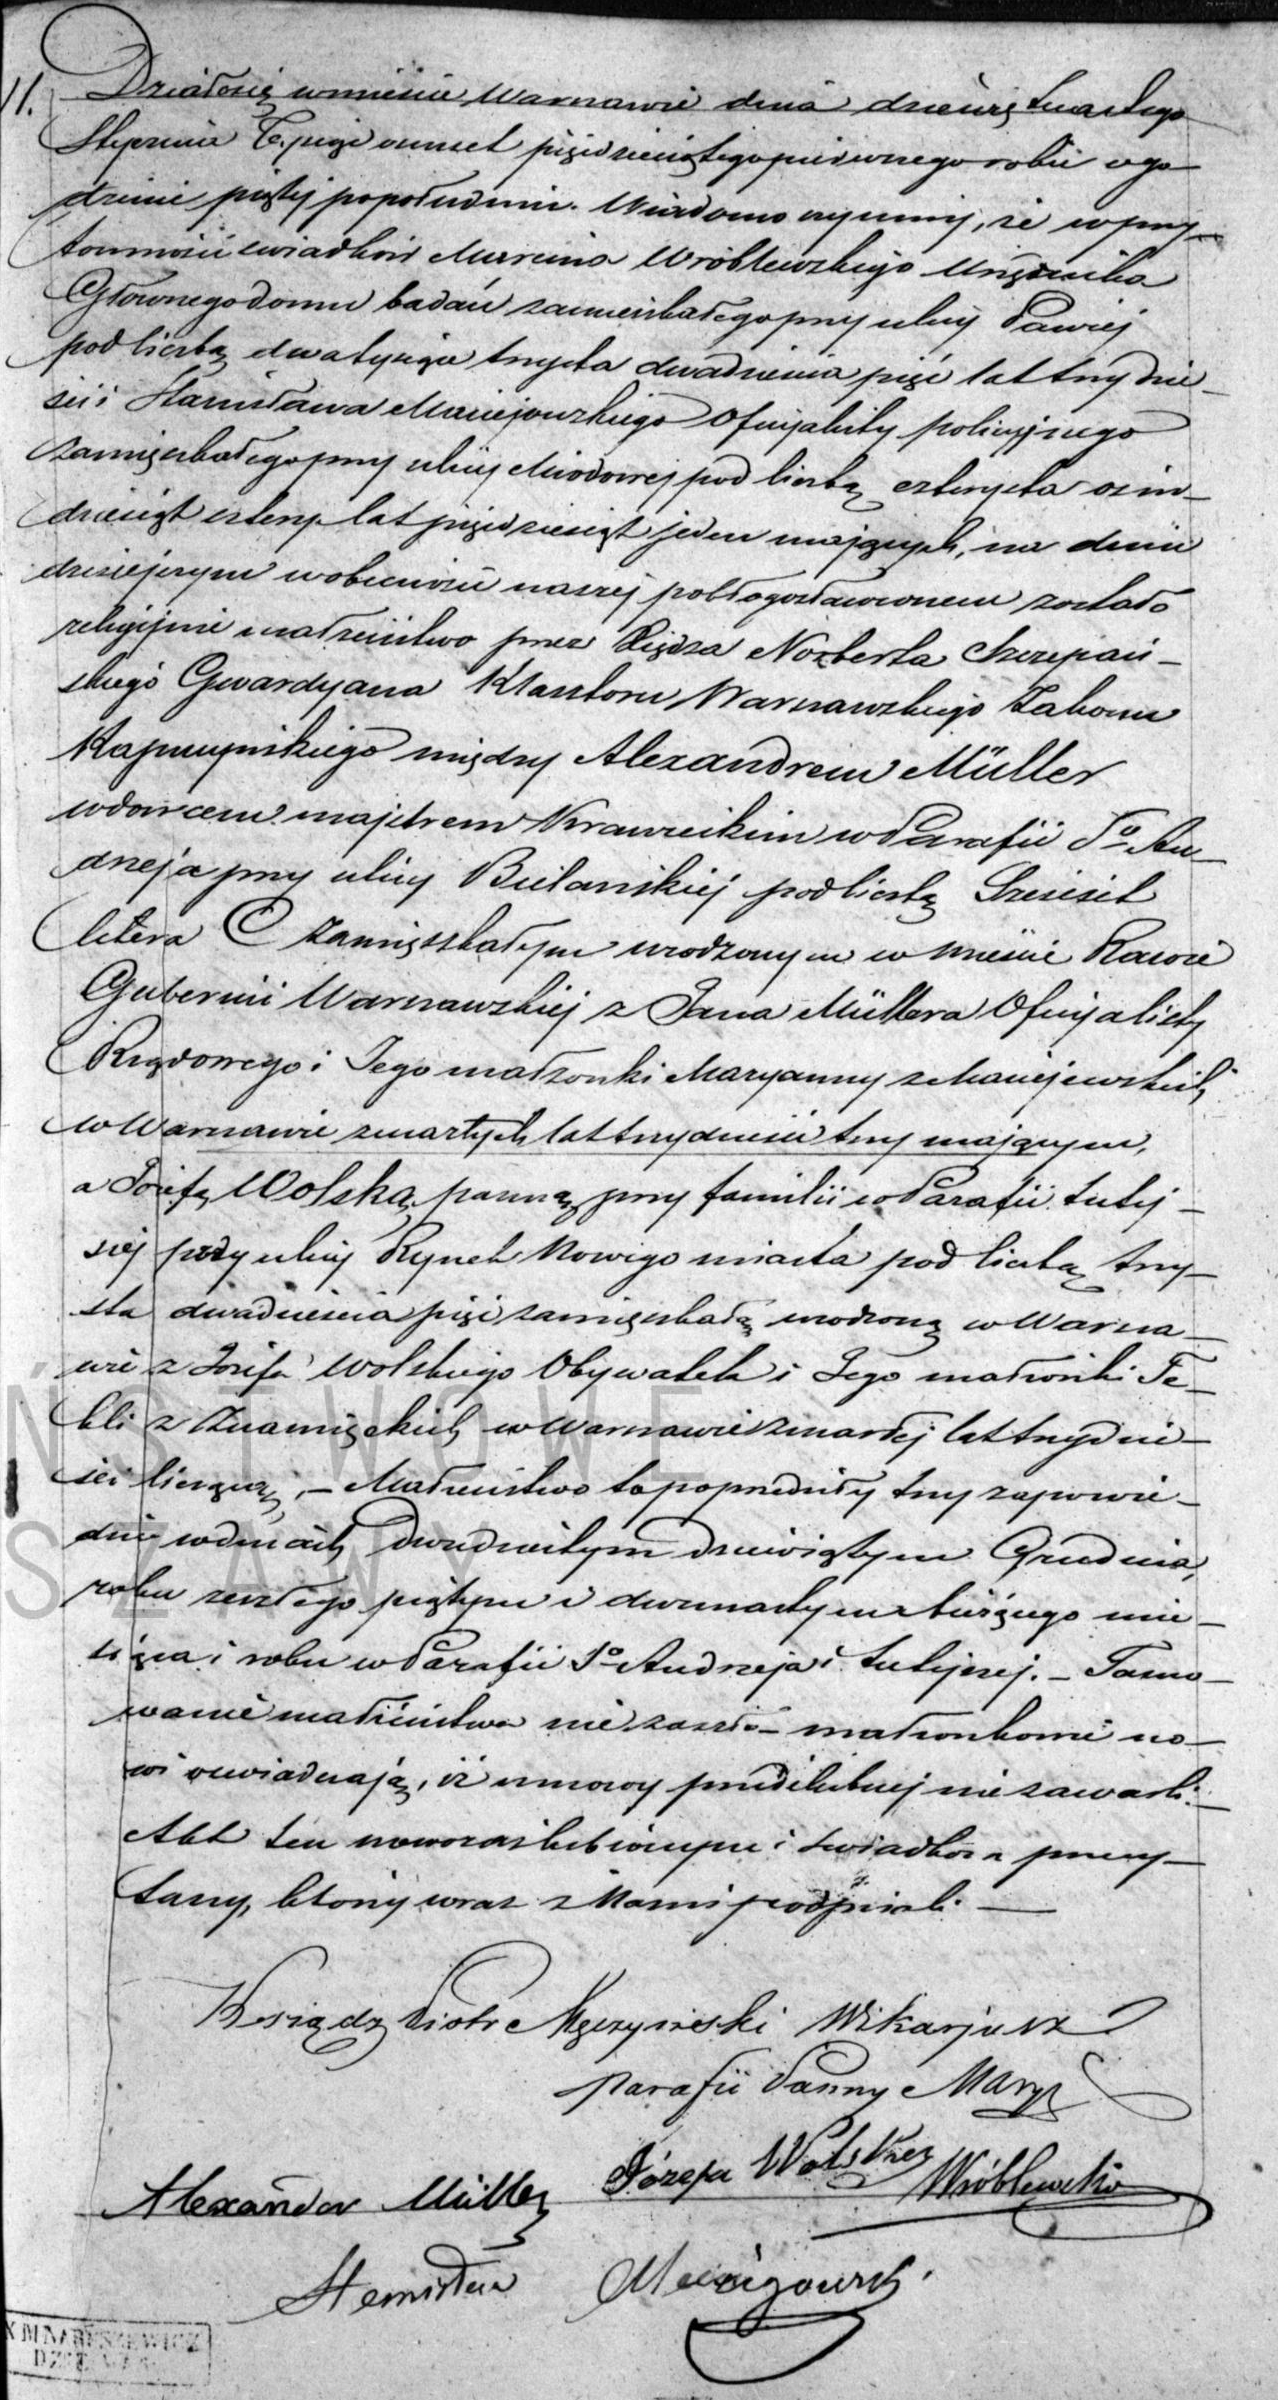 11. Działo się w mieście Warszawie dnia dziewiętnastego
Stycznia T. pięć osmset pięćdziesiątego pierwszego roku o go-
dzinie piątej popołudniu. Wiadomo czynimy, że w przy-
tomności świadków Marcina Wróblewskiego Urzędnika
Głównego domu badań zamieszkałego przy ulicy Pawiej
pod liczbą dwa tysiące trzysta dwadzieścia pięć lat trzydzie-
ści i Stanisława Maciejowskiego Oficjalisty policyjnego
zamięszkałego przy ulicy Miodowej pod liczbą czterysta ośm-
dziesiąt cztery lat pięćdziesiąt jeden mających, na dniu
dzisiejszym w obecności naszej pobłogosławionem zostało
religijnie małżeństwo przez Xiędza Norberta Szczepań-
skiego Gwardyana Klasztoru Warszawskiego Zakonu
Kapucyńskiego między Alexandrem Müller
wdowcem majstrem Krawieckim w Parafii So. An-
drzeja przy ulicy Bielańskiej pod liczbą Sześćset
litera C zamięszkałym urodzonym w mieście Rawie
Gubernii Warszawskiej z Jana Müllera Oficjalisty
Rządowego i Jego małżonki Maryanny z Maciejewskich
w Warszawie zmarłych lat trzydzieści trzy mającym,
a Józefą Wolską panną przy familii w Parafii tutej-
szej przy ulicy Rynek Nowego miasta pod liczbą trzy-
sta dwadzieścia pięć zamięszkałą urodzoną w Warsza-
wie z Józefa Wolskiego Obywatela i Jego małżonki Te-
kli z Znamięckich w Warszawie zmarłej lat trzydzie-
ści liczącą, - Małżeństwo to poprzedziły trzy zapowie-
dzie w dniach Dwudziestym Dziewiątym Grudnia,
roku zeszłego piątym i dwunastym bieżącego mie-
siąca i roku w Parafii So. Andrzeja i tutejszej. - Tamo-
wanie małżeństwa nie zaszło - małżonkowie no-
wi oświadczają, iż umowy przedślubnej nie zawarli. -
Akt ten nowozaślubionym i świadkom przeczy-
tany, który wraz z Nami podpisali -
Ksiądz Piotr Męczyński Wikarjusz
parafii Panny Maryi
Józefa Wolska
Alexander Müller
Wróblewski
Stanisław Maciejowski
ŃSTWOWE
SZAWY